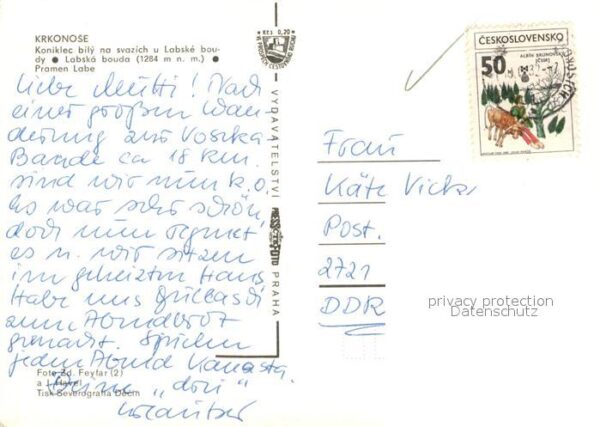 KRKONOŠE
Koniklec bílý na svazích u Labské bou-
dy ● Labská bouda (1284 m n. m.) ●
Pramen Labe
Kčs 0,20
Liebe Mutti! Nach
einer großen Wan-
derung zur Vosika
Baude ca 18 km.
sind wir nun k.o.
Es war sehr schön,
doch nun regnet
es u. wir sitzen
im geheizten Haus,
Habe uns
zum Abendbrot
gemacht. Spielen
jeden Abend Canasta.
Foto Zd. Feyfar (2)
a J. Havel
Deine „drei"
Tisk Severografia Děčín
VYDAVATELSTVÍ
PRESSFOTO
PRAHA
ČESKOSLOVENSKO
ALBÍN BRUNOVSKÝ
50
Frau
Käte Vick
Post.
2721
DDR
privacy protection
Datenschutz